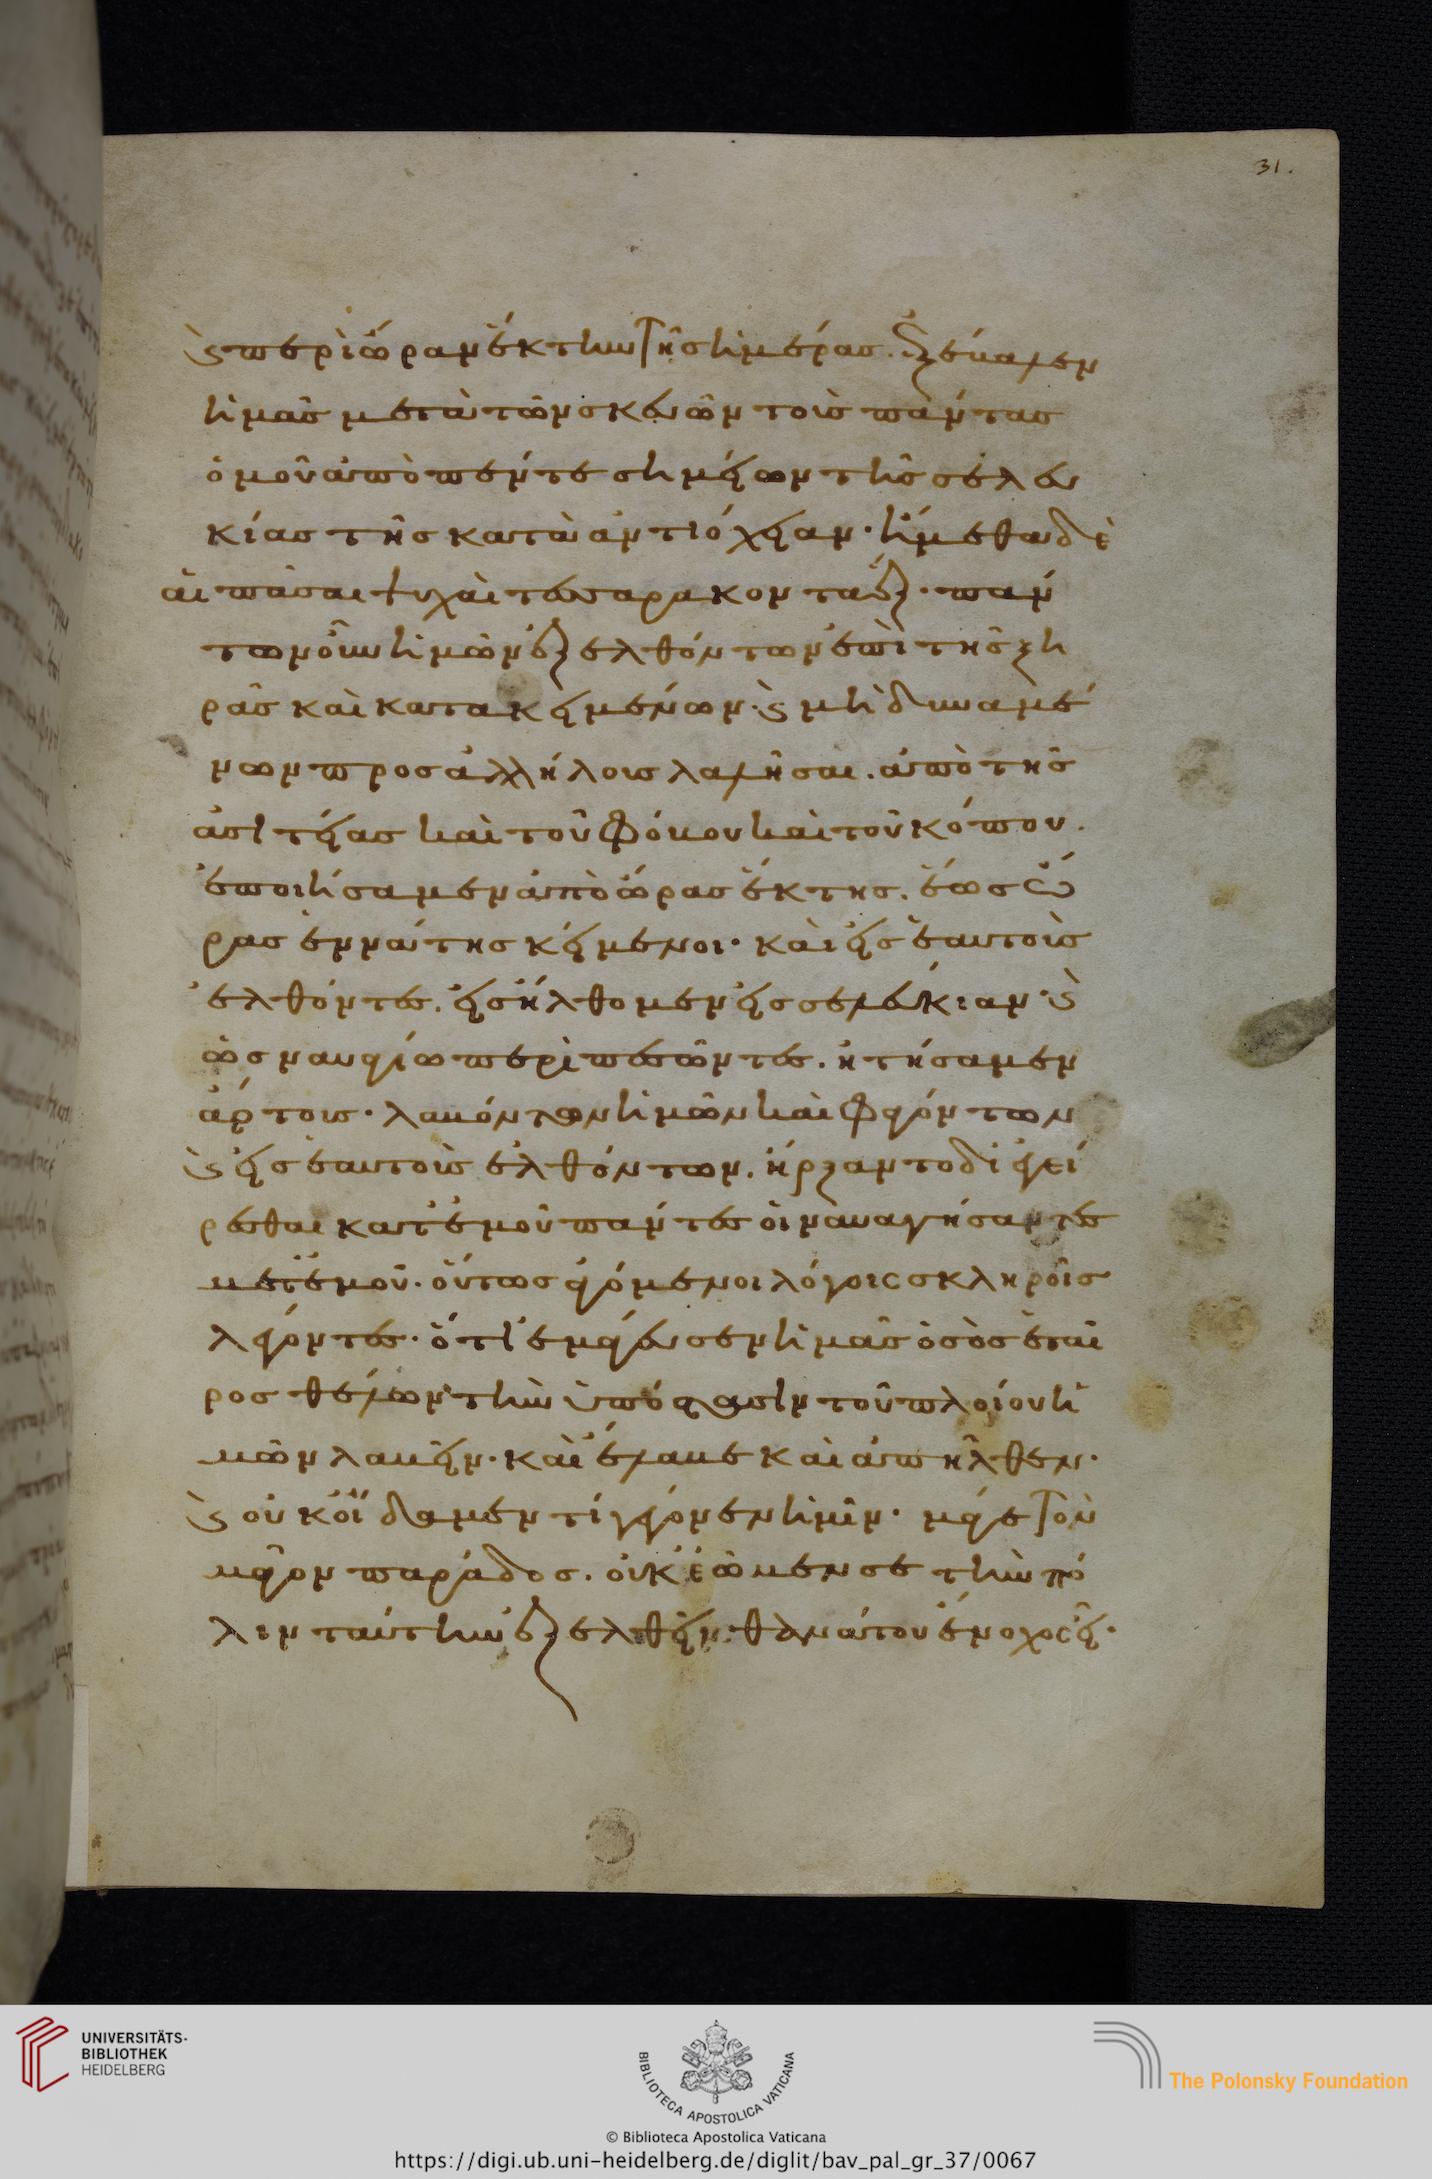 31.
ϗ περὶ ὥραν ἕκτην τῆς ἡμέρας. ἐξέβαλεν
ἡμᾶς μετὰ τῶν σκευῶν τοὺς πάντας
ὁμοῦ ἀπὸ πέντε σημείων τῆς σελευ
κίας τῆς κατὰ ἀντιόχειαν· ἤμεθα δὲ
αἱ πᾶσαι ψυχαὶ τεσσαράκοντα ἕξ· πάν
των οὖν ἡμῶν ἐξελθόντων ἐπὶ τῆς ξη
ρᾶς καὶ κατακειμένων· ϗ μὴ δυναμέ
νων προς ἀλλήλους λαλῆσαι. ἀπὸ τῆς
ἀσιτείας καὶ τοῦ φόβου καὶ τοῦ κόπου.
ἐποιήσαμεν ἀπὸ ὥρας ἕκτης. ἕως ὥ
ρας ἐννάτης κείμενοι· καὶ εἰς ἑαυτοὺς
ἐλθόντες. εἰσήλθομεν εἰς σελεύκιαν· ϗ
ὡς ναυαγίω περὶ πεσῶντες. ἠτήσαμεν
ἄρτους· λαβόντων ἡμῶν καὶ φαγόντων
ϗ εἰς ἑαυτοὺς ἐλθόντων. ἤρξαντο διεγεί
ρεσθαι κατ' ἐμοῦ πάντες οἱ ναυαγήσαντες
μετ' ἐμοῦ. οὕτως αγόμενοι λόγοις σκληροῖς
λέγοντες· ὅτι ἐμάγευσεν ἡμᾶς ὁ σὸς ἑταῖ
ρος θέλων τὴν ὑπόστασιν τοῦ πλοίου ἡ
μῶν λαβεῖν· καὶ ἔλαβε καὶ ἀπῆλθεν·
ϗ οὐκ οἴδαμεν τί γέγονεν ἡμῖν· μάγε τὸν
μάγον παράδος. οὐκ ἐῶμεν σε τὴν πό
λιν ταύτην ἐξελθεῖν· θανάτου ἔνοχος εἶ·
UNIVERSITÄTS-
BIBLIOTHEK
HEIDELBERG
BIBLIOTECA APOSTOLICA VATICANA
The Polonsky Foundation
© Biblioteca Apostolica Vaticana
https://digi.ub.uni-heidelberg.de/diglit/bav_pal_gr_37/0067